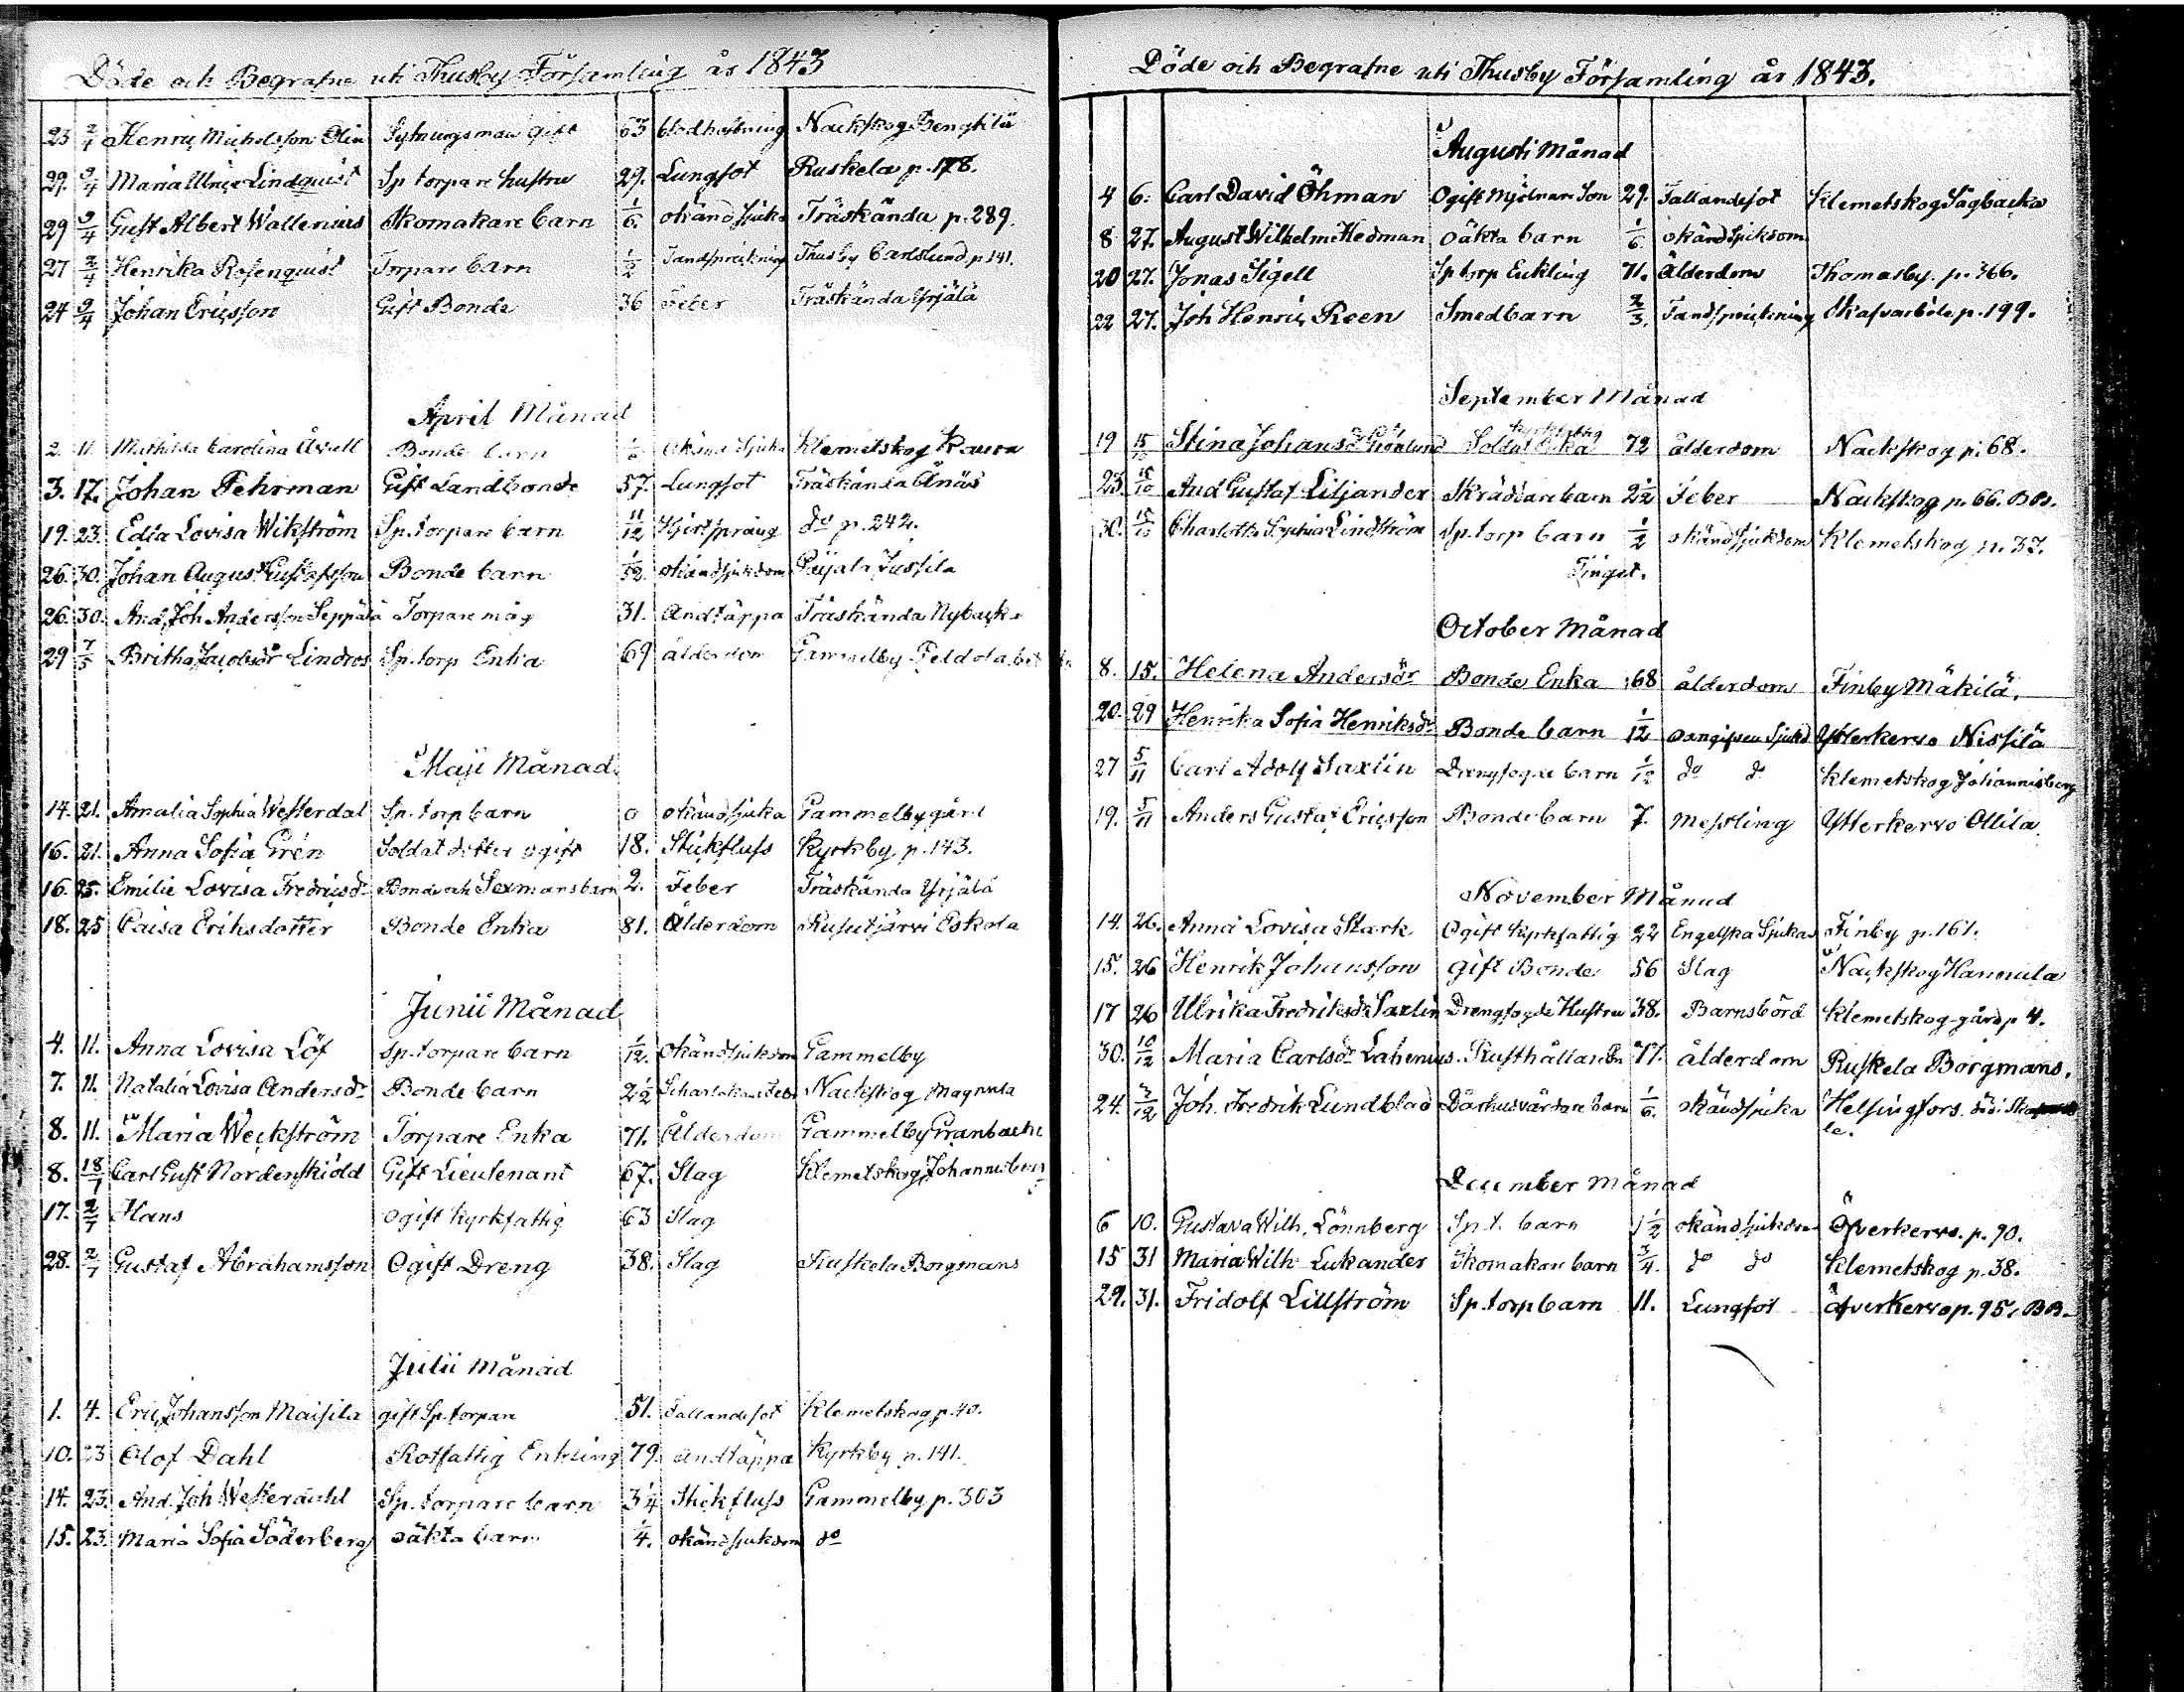 Döde och Begrafne uti Thusby Församling år 1843
23 2/4 Henric Michelsson Olin Sytningsman gift 63 blodhostning Nackskog Bengtilä
29. 9/4 Maria Ulrica Lindquist Sp torpare hustru 29. Lungsot Ruskela p. 178.
29 9/4 Gust Albert Wallenius Skomakare barn 1/6. okänd sjuka Träskända p. 289.
27 2/4 Henrika Rosenquist Torpare barn 1/2 Tandsprickning Thusby Carlslund p. 141.
24 9/4 Johan Ericsson Gift Bonde 36 Feber Träskända Yrjälä
April Månad
2. 11. Mathilda Carolina Bonde barn okänd Sjuka Klemetskog
3. 17. Johan Fehrman Gift Landbonde 57. Lungsot Träskända Ånäs
19. 23. Edla Lovisa Wikström Sp. torpare barn 11/12 do p. 242.
26. 30. Johan August Gustafsson Bonde barn 1/52. okänd sjukdom Paijala Jussila
26. 30. And. Joh Andersson Seppälä Torpare måg 31. Andtäppa Träskända Nybacka
29 7/5 Britha Jacobsdr Lindros Sp. torp Enka 69 ålderdom Gammelby
Maji Månad
14. 21. Amalia Sophia Westerdal Sp. torp barn 0 okänd sjuka Gammelby gård
16. 21. Anna Sofia Grén Soldat dotter ogift 18. Stickfluss Kyrkby p. 143.
16. 25. Emilie Lovisa Fredricsdr Bonde och Sexmans barn 2. Feber Träskända Yrjälä
18. 25 Caisa Eriksdotter Bonde Enka 81. Ålderdom Rusutjärvi Eskola
Junii Månad
4. 11. Anna Lovisa Löf Sp. torpare barn 1/12. Okänd sjukdom Gammelby
7. 11. Natalia Lovisa Andersdr Bonde barn 2 1/2 Scharlakans Feber Nackskog Magnula
8. 11. Maria Weckström Torpare Enka 71. Ålderdom Gammelby Granbacka
8. 18/7 Carl Gust Nordenskiöld Gift Lieutenant 67. Slag Klemetskog Johannisberg
17. 2/7 Hans Ogift Kyrkfattig 63 Slag
28. 2/7 Gustaf Abrahamsson Ogift Dreng 38. Slag Ruskela Borgmans
Julii Månad
1. 4. Eric Johansson Maisila gift Sp. torpare 51. Fallandesot Klemetskog p. 40.
10. 23 Olof Dahl Rotfattig Enkling 79. andtäppa Kyrkby p. 141.
14. 23. And. Joh Westerdahl Sp. torpare barn 3 1/4 Stickfluss Gammelby p. 303
15. 23. Maria Sofia Söderberg oäkta barn 1/4. okänd sjukdom do
Döde och Begrafne uti Thusby Församling år 1843.
Augusti Månad
4 6. Carl David Öhman Ogift Mjölnare Son 29. Fallandesot Klemetskog Sågbacka
8 27. August Wilhelm Hedman oäkta barn 1/6 okänd Sjukdom
20 27. Jonas Sigell Sp torp Enkling 71. Ålderdom Thomasby. p. 366.
22 27. Joh Henric Reen Smed barn 2/3. Tandsprickning Skafvarböle p. 199.
September Månad
19 15/10 Stina Johansdr Grönlund Kyrkfattig Soldat Enka 72 ålderdom Nackskog p. 68.
23. 15/10 And Gustaf Liljander Skräddare barn 2 1/2 Feber Nackskog p. 66. BB.
30. 15/10 Charlotta Sophia Lindström Sp. torp barn 1/2 okänd sjukdom Klemetskog p. 37.
Tinget.
October Månad
8. 15. Helena Andersdr Bonde Enka 68 ålderdom Finby Mäkilä.
20. 29 Henrika Sofia Henriksdr Bonde barn 1/12 oangifven Sjukd Ytterkervo Nissilä
27 5/11 Carl Adolf Saxlin Drengfogde barn 1/12 do do Klemetskog Johannisberg
19. 5/11 Anders Gustaf Ericsson Bonde barn 7. messling Ytterkervo Ollila
November Månad
14. 26. Anna Lovisa Stark Ogift Kyrkfattig 22 Engelska Sjukan Finby p. 161.
15. 26 Henrik Johansson gift Bonde 56 Slag Nackskog Hannula
17 26 Ulrika Fredriksdr Saxlin Drengfogde Hustru 38. Barnsbörd Klemetskog gård p 4.
30. 10/12 Maria Carlsdr Lahenius. Rusthållar En 77. ålderdom Ruskela Borgmans.
24. 3/12 Joh. Fredrik Lundblad Dårhusvårdare barn 1/6. okänd sjuka Helsingfors.
le.
December Månad
6 10. Gustava Wilh. Lönnberg Sp. t. barn 1 1/2 okänd sjukdom Öfverkervo. p. 90.
15 31 Maria Wilh Lukander Skomakare barn 3/4. do do Klemetskog p. 38.
29. 31. Fridolf Lillström Sp. torp barn 11. Lungsot öfverkervo p. 95. BB.